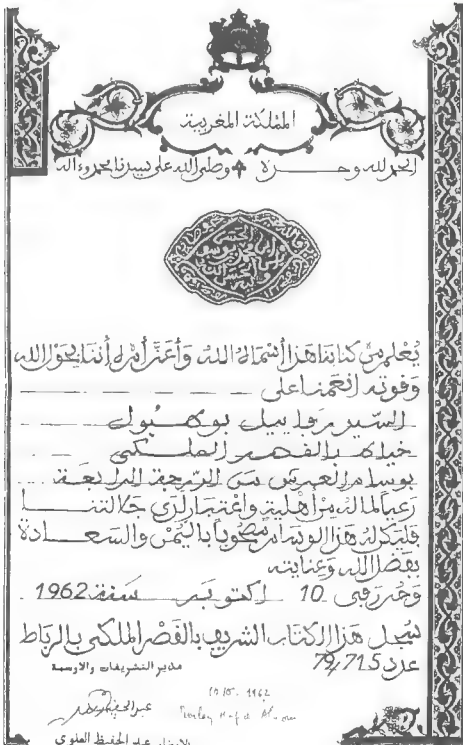 المملكة المغربية
الحمد لله وحده وصلى الله على سيدنا محمد وءاله
يُعلم من كتابنا هذا أسماه الله وأعز أمره أننا بحول الله
وقوته أنعمنا على
السيد رفاييل بوحبول
خياط بالقصر الملكي
بوسام العرش من الدرجة الرابعة
رعيا لماله من أهلية واعتبار لدى جلالتنا
فليكن له هذا الوسام مصحوبا باليمن والسعادة
بفضل الله وعنايته
وحرر في 10 اكتوبر سنة 1962
سُجل هذا الكتاب الشريف بالقصر الملكي بالرباط
عدد 79,715
مدير التشريفات والاوسمة
1962
عبد الحفيظ العلوي